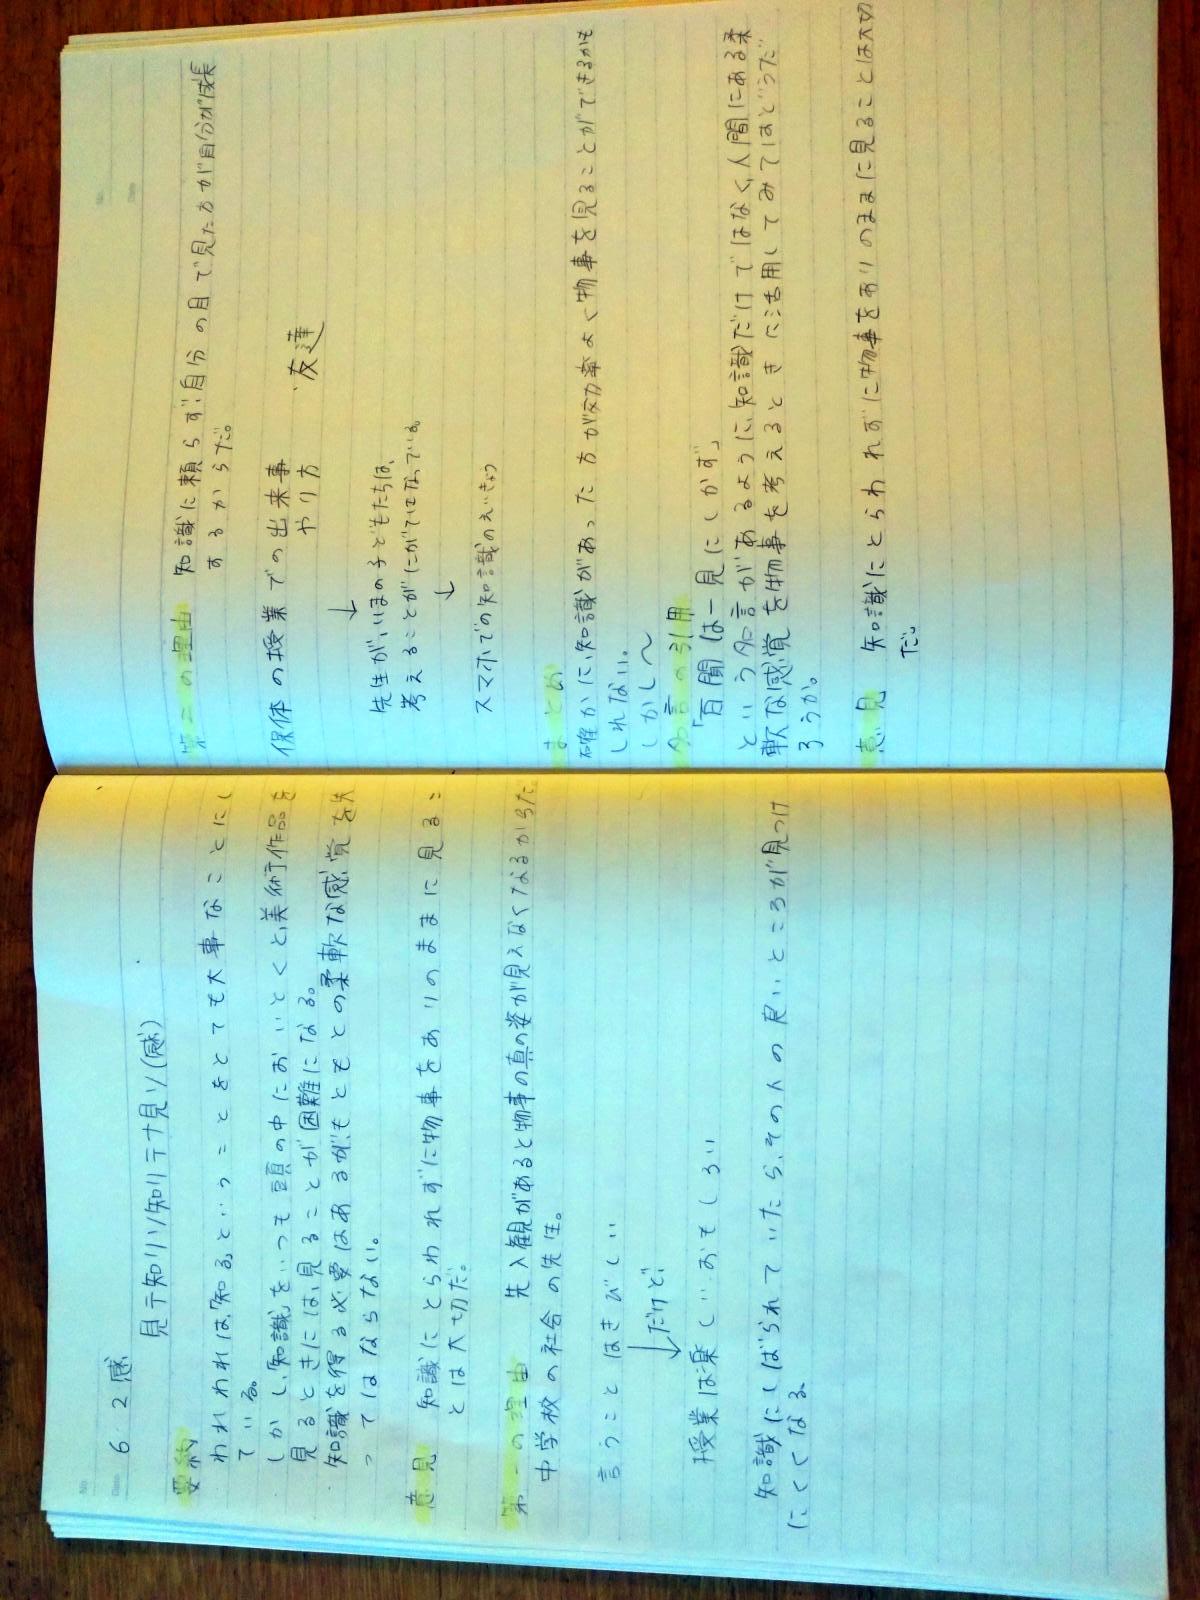 6 2感
見テ知リソ知リテナ見ソ(感)
要約
われわれは「知る」ということをとても大事なことにし
ている。
しかし、「知識」をいつも頭の中においとくと、美術作品を
見るときには、見ることが困難になる。
知識を得る必要はあるが、もともとの柔軟な感覚を失
ってはならない。
意見 知識にとらわれずに物事をありのままに見るこ
とは大切だ。
第一の理由 先入観があると物事の真の姿が見えなくなるからだ
中学校の社会の先生。
言うことはきびしい
↓だけど
授業は楽しい、おもしろい
知識にしばられていたら、その人の良いところが見つけ
にくくなる
第二の理由 知識に頼らず自分の目で見た方が自分が成長
するからだ。
保体の授業での出来事
やり方 友達
↓
先生が、いまの子どもたちは、
考えることがにがてになっている。
↓
スマホでの知識のえいきょう
まとめ
確かに、知識があった方が効率よく物事を見ることができるかも
しれない。
しかし〜
名言の引用
「百聞は一見にしかず」
という名言があるように、知識だけではなく、人間にある柔
軟な感覚を物事を考えるときに活用してみてはどうだ
ろうか。
意見 知識にとらわれずに物事をありのままに見ることは大切
だ。